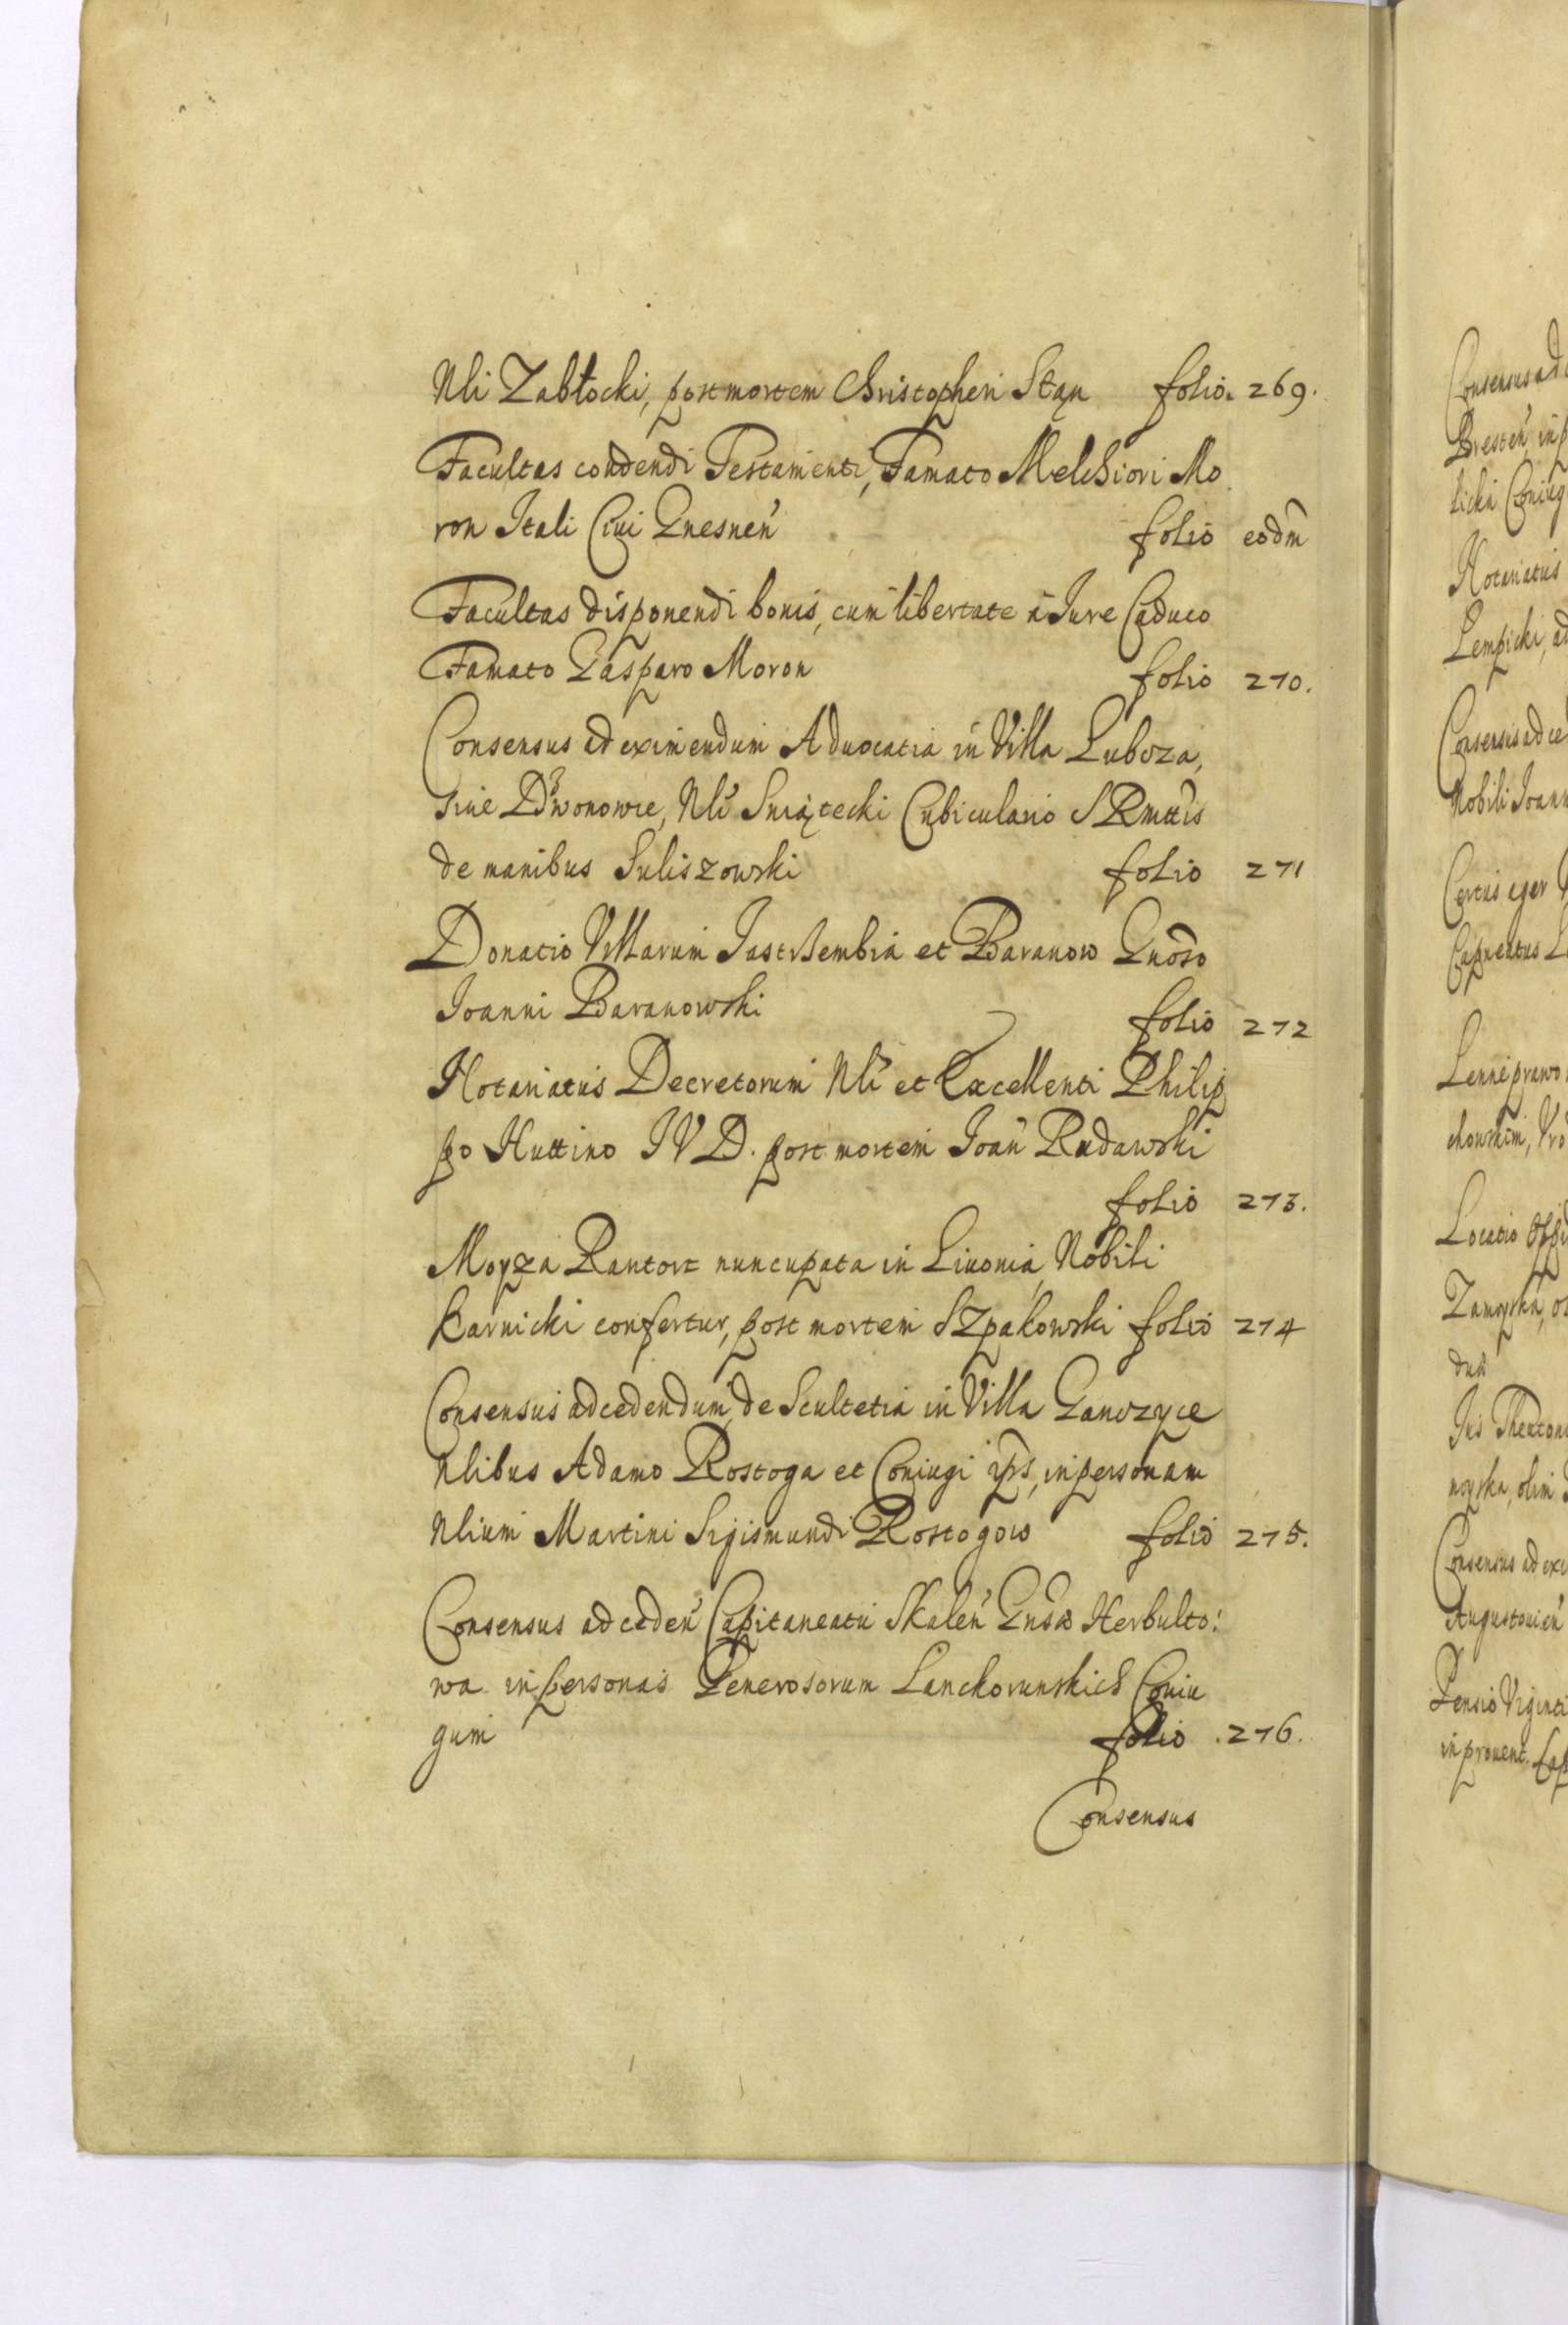 Nli Zabłocki, post mortem Christopheri Stąn folio. 269.
Facultas condendi Testamenti, Famato Melchiori Mo
ron Itali Ciui Gnesneń folio eodm̃
Facultas disponendi bonis, cum libertate a Iure Caduco
Famato Gasparo Moron folio 270.
Consensus ad eximendum Aduocatia in Villa Luboza,
siue Dzwonowie, Nli Swiątecki Cubiculario SRmttis
de manibus Suliszowski folio 271
Donatio Villarum Jastrzembia et Baranow Gnoso
Joanni Baranowski folio 272
Notariatus Decretorum Nli et Excellenti Philip
po Huttino IVD. post mortem Joan̄ Rudawski
folio 273.
Moyza Rantort nuncupata in Liuonia, Nobili
Karnicki confertur, post mortem Szpakowski folio 274
Consensus ad cedendum, de Scultetia in Villa Ganczyce
Nlibus Adamo Rostoga et Coniugi ips, in personam
Nlium Martini Sigismundi Rostogow folio 275.
Consensus ad cedeń Capitaneatu Skaleń Gnsæ Herbulto:
wa in personas Generosorum Lanckorunskich Coniu
gum folio .276.
Consensus
Consensus ad
Bresteń, in p
licki Coniug
Notariatus
Lempicki, ad
Consensus ad ce
Nobili Joann
Certus ager
Capneatus L
Lenne prawo
chowskim, Vro
Locatio Oppi
Zamoyska, o
duń
Jus Theuton
moyska, olim
Consensus ad exi
Augustouień
Pensio Viginti
in prouent. Cap